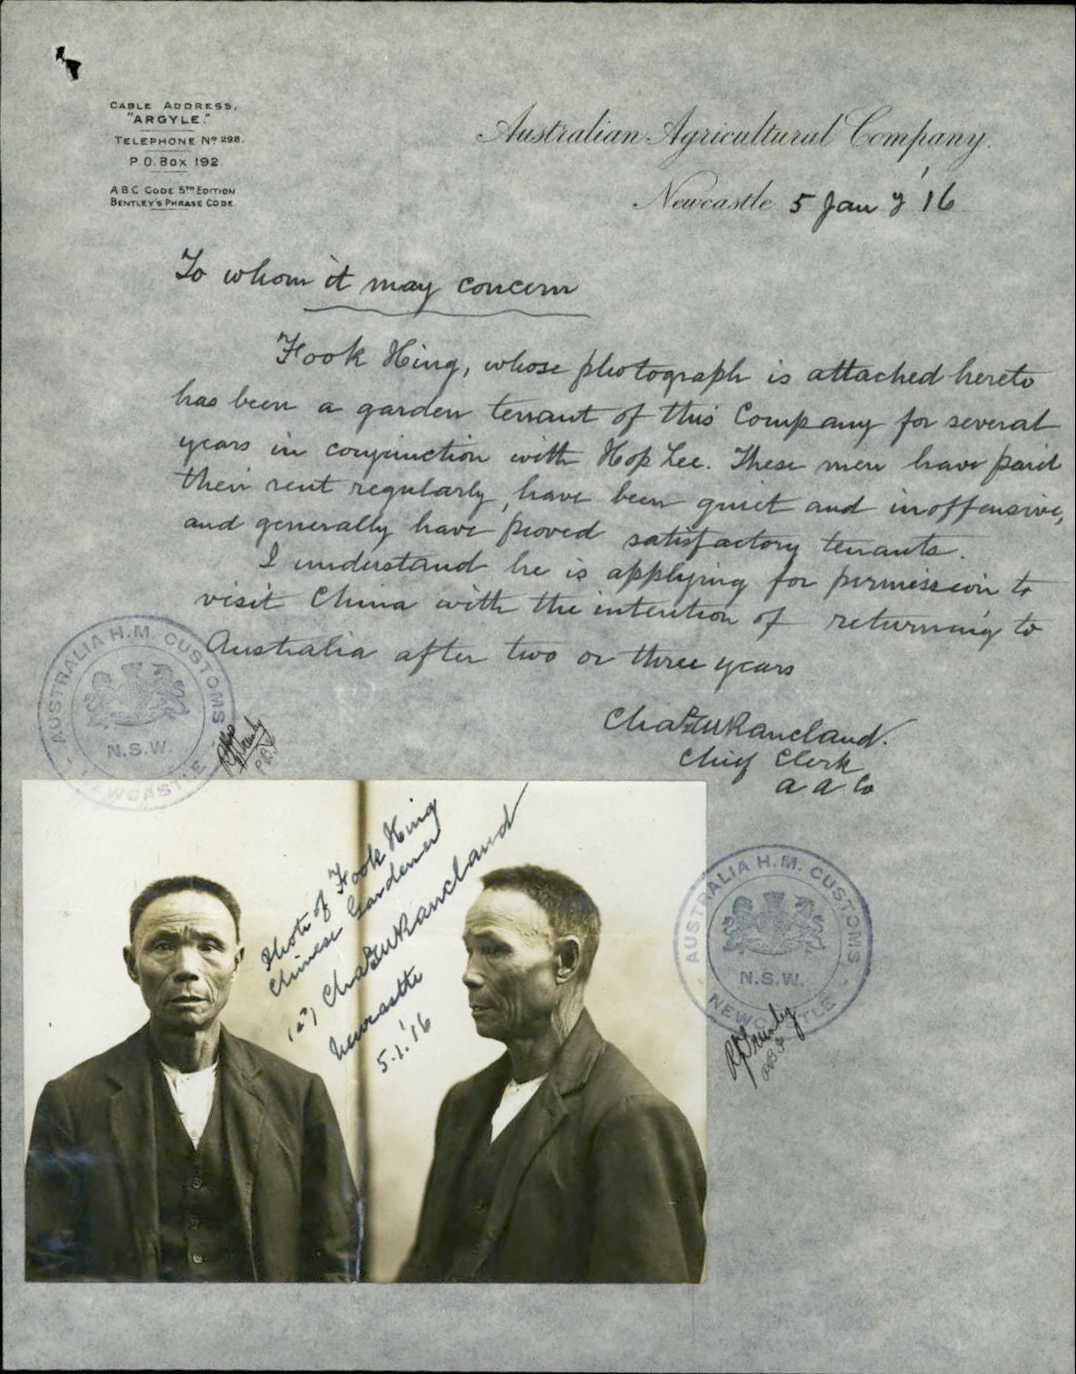 CABLE ADDRESS,
"ARGYLE."
TELEPHONE No 298.
P.O. Box 192
A B C CODE 5TH EDITION
BENTLEY'S PHRASE CODE
Australian Agricultural Company.
Newcastle 5 Jany '16
To whom it may concern
Hook Hing, whose photograph is attached hereto
has been a garden tenant of this Company for several
years in conjunction with Hop Lee. These men have paid
their rent regularly, have been quiet and inoffensive,
and generally have proved satisfactory tenants.
I understand he is applying for permission to
visit China with the intention of returning to
Australia after two or three years
Chief Clerk
A A Co
AUSTRALIA H.M. CUSTOMS
N.S.W.
NEWCASTLE
Photo of Hook Hing
Chinese Gardener
Newcastle
5.1.'16
AUSTRALIA H.M. CUSTOMS
N.S.W.
NEWCASTLE